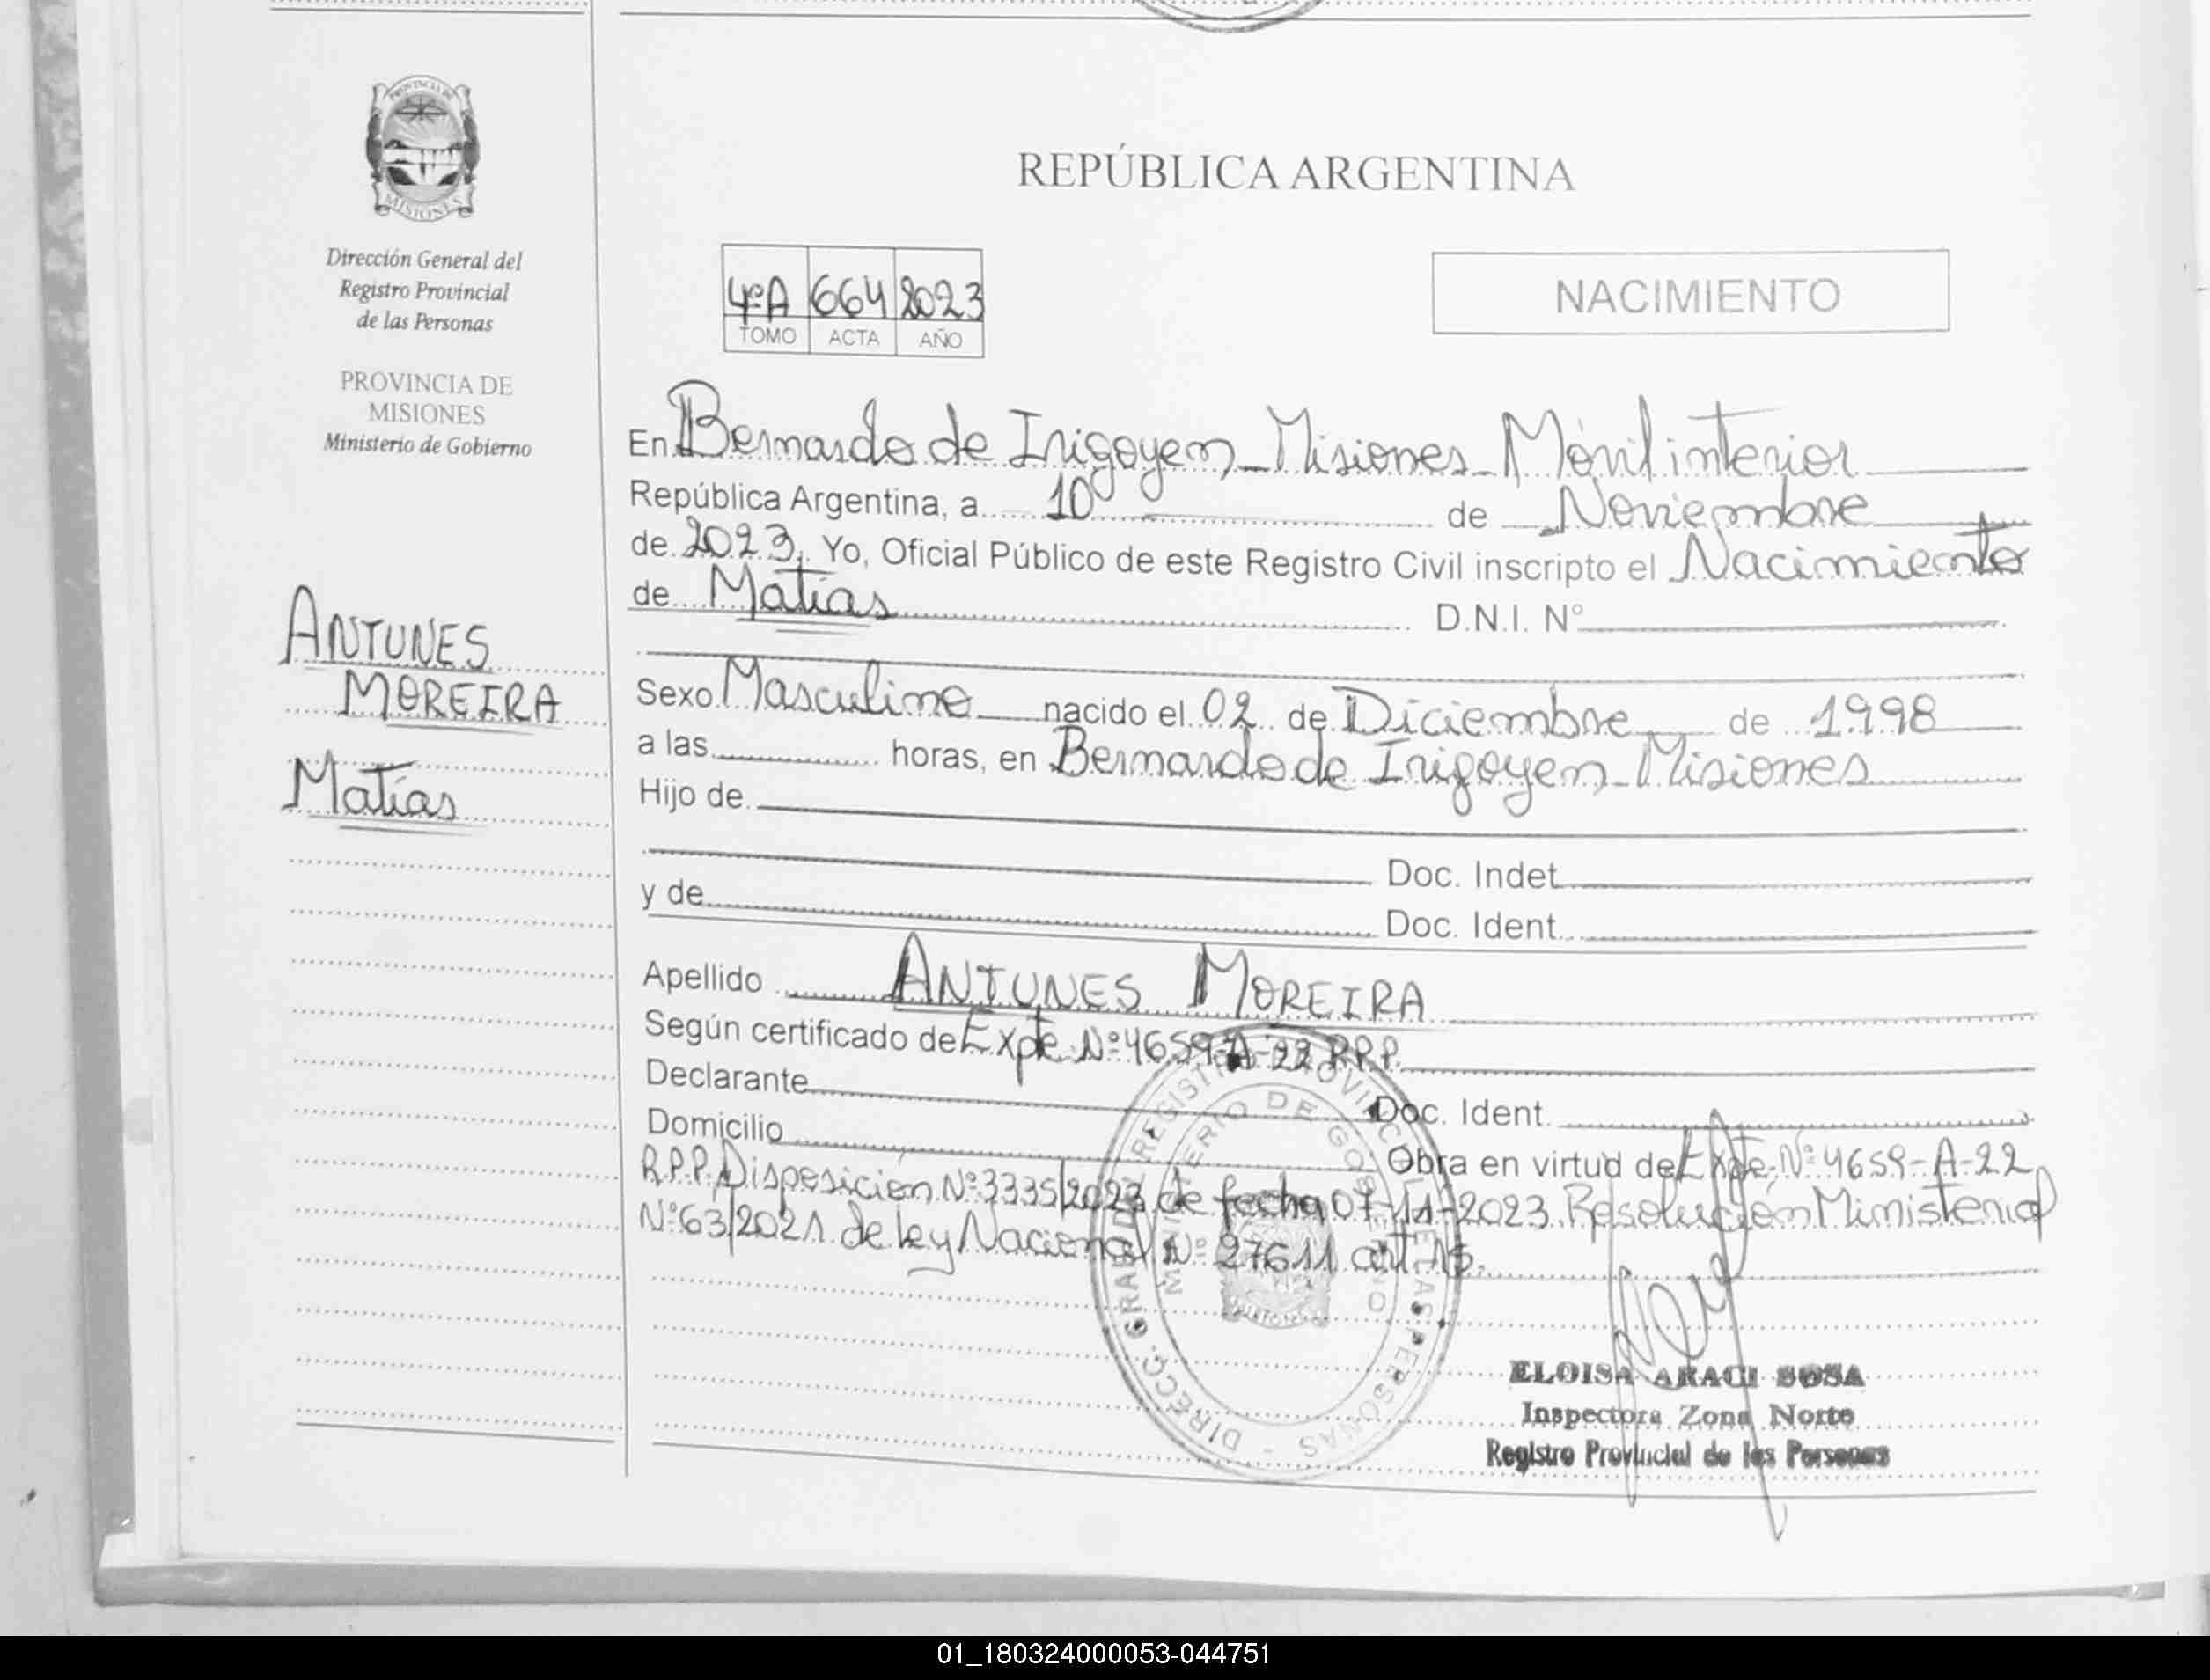 PROVINCIA DE
MISIONES
Dirección General del
Registro Provincial
de las Personas
PROVINCIA DE
MISIONES
Ministerio de Gobierno
ANTUNES
MOREIRA
Matías
REPÚBLICA ARGENTINA
4ºA 664 2023
TOMO ACTA AÑO
NACIMIENTO
En Bernardo de Irigoyen - Misiones - Móvil interior
República Argentina, a 10 de Noviembre
de 2023. Yo, Oficial Público de este Registro Civil inscripto el Nacimiento
de Matías D.N.I. Nº
Sexo Masculino nacido el 02 de Diciembre de 1998
a las horas, en Bernardo de Irigoyen - Misiones
Hijo de
Doc. Indet
y de
Doc. Ident.
Apellido ANTUNES MOREIRA
Según certificado de Expte. Nº 4659-A-22 RRP.
Declarante
Doc. Ident.
Domicilio
Obra en virtud de Expte. Nº 4659-A-22
R.P.P. Disposición Nº 3335/2023 de fecha 07-11-2023. Resolución Ministerial
Nº 63/2021 de ley Nacional Nº 27611 art. 15.
DIRECC. GRAL. DE REGISTRO PROVINCIAL DE LAS PERSONAS -
MINISTERIO DE GOBIERNO
ELOISA ARACI SOSA
Inspectora Zona Norte
Registro Provincial de las Personas
01_180324000053-044751